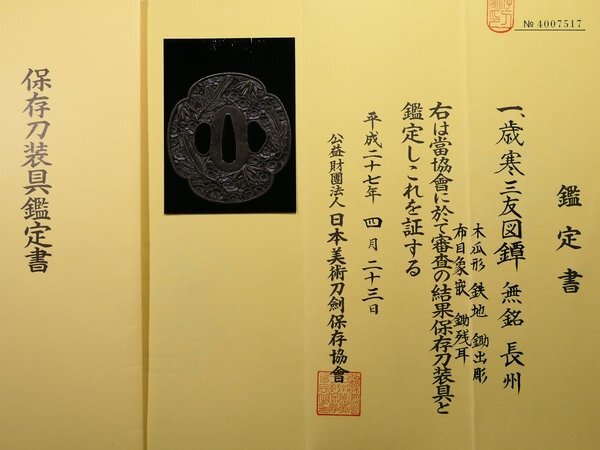 № 4007517
鑑定書
一、歳寒三友図鐔 無銘 長州
木瓜形 鉄地 鋤出彫
布目象嵌 鋤残耳
右は當協會に於て審査の結果保存刀装具と
鑑定しこれを証する
平成二十七年 四月 二十三日
公益財團法人 日本美術刀劍保存協會
保存刀装具鑑定書